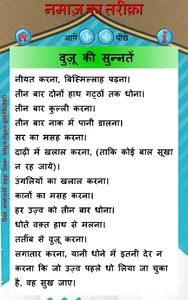 नमाज़ का तरीक़ा
आगे पीछे
वुज़ू की सुन्नतें
नीयत करना, बिस्मिल्लाह पढ़ना।
तीन बार दोनों हाथ गट्ठों तक धोना।
तीन बार कुल्ली करना।
तीन बार नाक में पानी डालना।
सर का मसह करना.
दाढ़ी में खलाल करना, (ताकि कोई बाल सूखा
न रह जाये)।
उंगलियों का खलाल करना।
कानों का मसह करना।
हर उज़्व को तीन बार धोना।
धोते वक़्त हाथ से मलना।
तर्तीब से वुज़ू करना।
लगातार करना, यानी धोने में इतनी देर न
करना कि जो उज़्व पहले धो लिया जा चुका
है, वह सुख जाए।